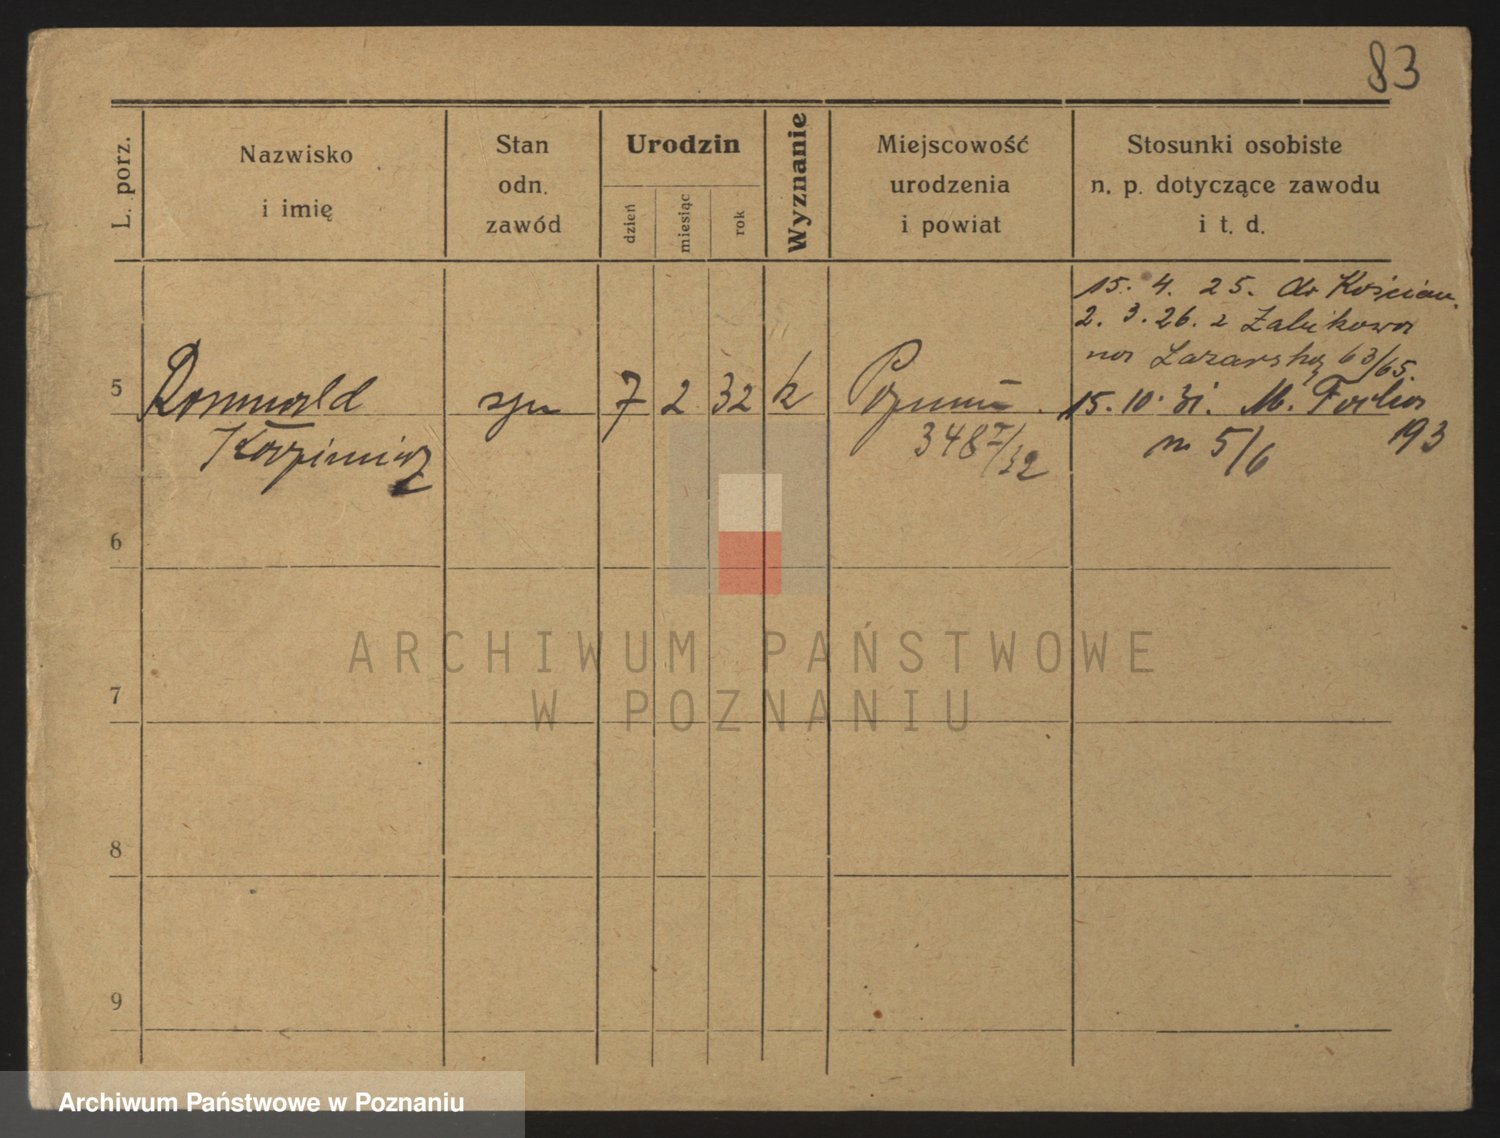 83
L. porz.
Nazwisko
i imię
Stan
odn.
zawód
Urodzin
dzień
miesiąc
rok
Wyznanie
Miejscowość
urodzenia
i powiat
Stosunki osobiste
n. p. dotyczące zawodu
i t. d.
15. 4. 25. do Kościan.
2. 3. 26. z Żabikowa
na Łazarską 63/65.
5 Romuald syn 7 2 32 k Poznań 15. 10. 31. M. Focha 193
Kazimierz 348 I/32 m 5/6
6
7
8
9
ARCHIWUM PAŃSTWOWE
W POZNANIU
Archiwum Państwowe w Poznaniu